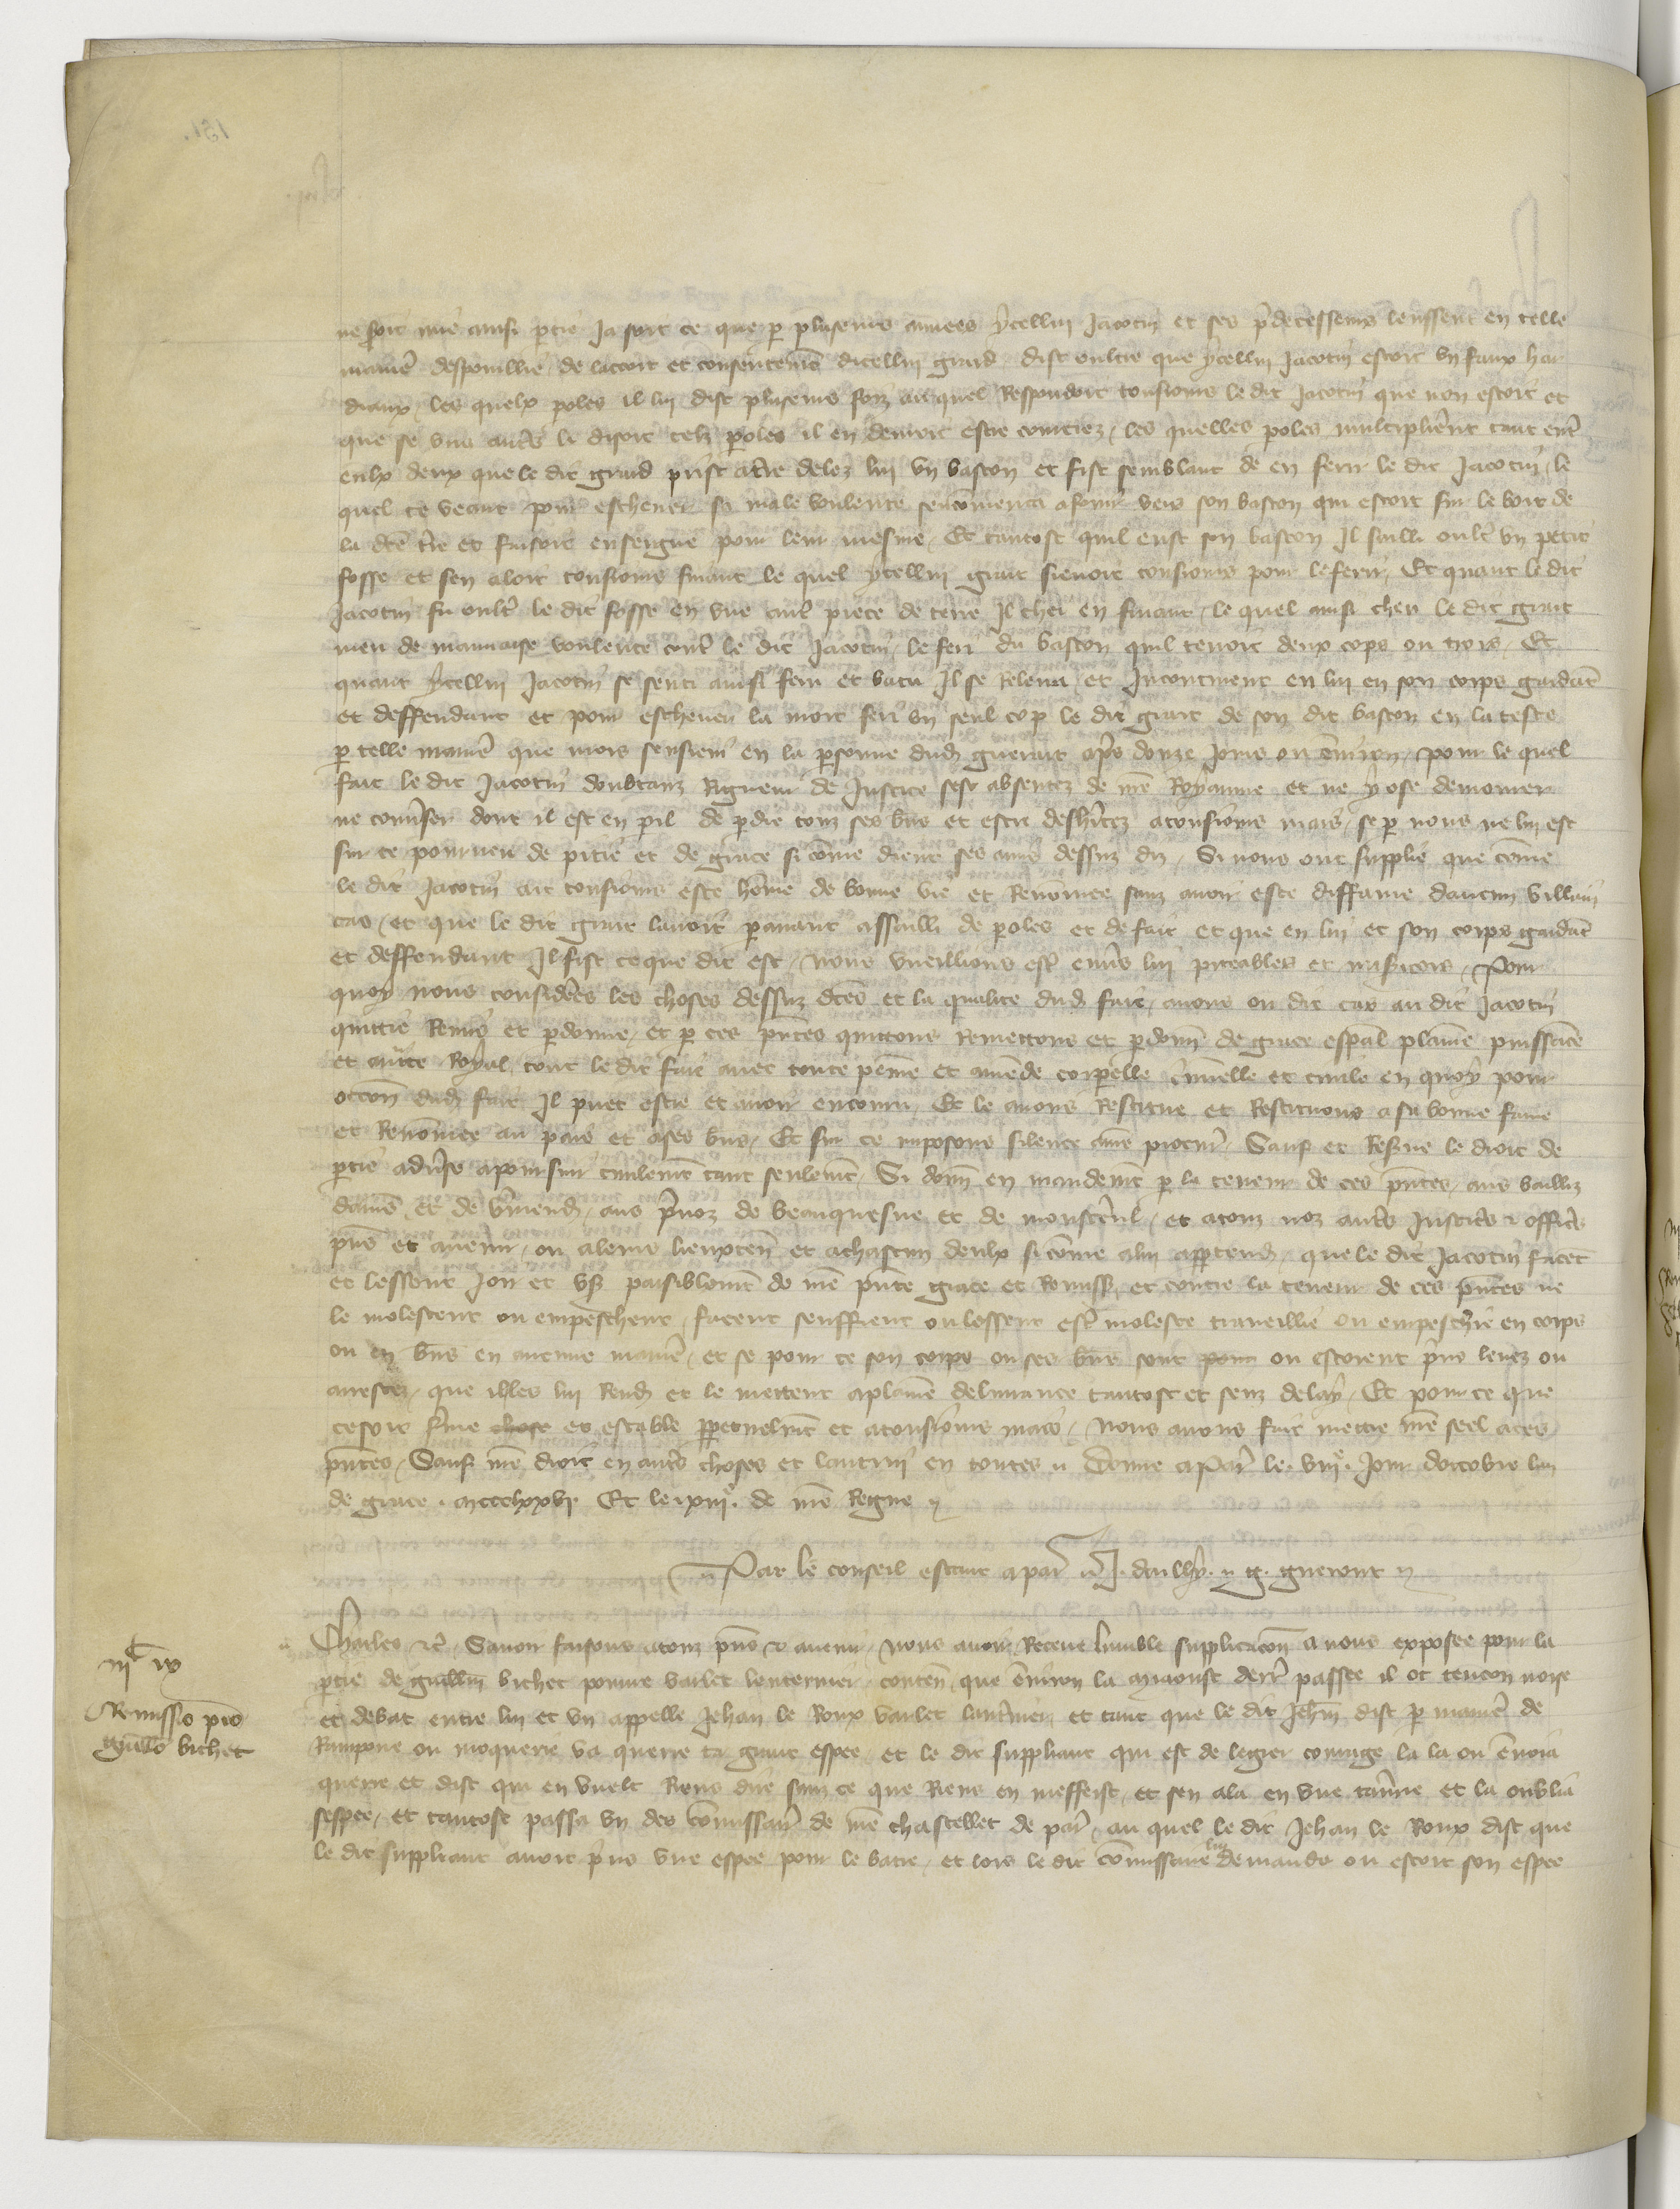 ne seroit mie ainsi ptie Ja soit ce que p pluseurs annees ycellui Jacotin et ses pdecesseurs leussent en telle
maniē despouillie de lacort et consentemēt dicellui grard dist oultre que ycellui Jacotin estoit vn faux har
diaux, les quelx poles il lui dist plusieurs foiz au quel Respondoit tousiours le dit Jacotin que non estoit et
que se vns autēs li disoit telz poles il en devroit estre courciez, les quelles poles multipliērent tant entr
eulx deux que le dit grard prist a tre delez lui vn baston et fist semblant de en ferir le dit Jacotin, le
quel ce veant pour eschever sa male voulente sencommenca a fouir vers son baston qui estoit sur le bort de
la dtē tre et faisoit enseigne pour leur mesme, Et tantost quil eust son baston Il sailli oultr vn petit
fosse et sen aloit tousiours fuiant le quel ycellui grart sievoit tousiours pour le ferir, Et quant le dit
Jacotin fu oultr le dit fosse en vne autr piece de terre Il chei en fuiant, le quel ainsi cheu le dit grart
meu de mauvaise voulente contr le dit Jacotin, le feri du baston quil tenoit deux cops ou trois, Et
quant ycellui Jacotin se senti ainsi feru et batu Il se Releva et Incontinent en lui en son corps gardāt
et deffendant et pour escheveu la mort feri vn seul cop le dit grart de son dit baston en la teste
p telle maniē que mors sensievi en la psonne dud guerart aprs douze jours ou environ, pour le quel
fait le dit Jacotin doubtanz Rigueur de Justice sest absentez de nrē Royaume et ne y ose demourer
ne convser dont il est en pil de pdre touz ses bns et estre desheritez a tousiours mais, se p nous ne lui est
sur ce pourveu de pitie et de grace si come dient ses amis dessuz diz, Si nous ont supplie que cōme
le dit Jacotin ait tousiours este hōme de bonne vie et Renomee sanz avoir este diffame daucun villain
cas, et que le dit grart lavoit pavant assailli de poles et de fait et que en lui et son corps gardāt
et deffendant Il fist ce que dit est, Nous vueillions estr envrs lui piteables et misicors, Pour
quoy nous considēs les choses dessuz dtes et la qualite dud fait, avons ou dit cas au dit Jacotin
quittie Remis et pdonne, et p ces pntes quittons Remettons et pdonn de grace espāl plainē puissāce
et aucte Royal, tout le dit fait avec toute peine et amēde corporelle criminelle et civile en quoy pour
occōn dud fait Il puet estre et avoir encouru, Et le avons Restitue et Restituons a sa bonne fame
et Renomee au pais et a ses bns, Et sur ce imposons silence a nrē procur, Sauf et Reserve le droit de
ptie advse a poursuir civilemēt tant seulemēt, Si donn en mandemēt p la teneur de ces pntes, aus bailliz
damiens et de vmend, aus prvoz de beauquesne et de monstērul, et a touz noz autrs Justicrs & officrs
pns et avenir, ou a leurs lieuxten et a chascun deulx si come a lui apptend, que le dit Jacotin facet
et lessent Joir et vser paisiblemēt de nrē pnte grace et Remiss, et contre la teneur de ces pntes ne
le molestent ou empeschent, facent seuffrent ou lessent estr moleste traveillie ou empeschie en corps
ou en bns en aucune maniē, et se pour ce son corps ou ses bns sont pour ou estoient pris levez ou
arrestez, que ilz les lui Rend et le mettent a plainē delivrance tantost et senz delay, Et pour ce que
ce soit ferme chose et estable ppetuelmēt et a tousiours mais, Nous avons fait mettre nrē seel a ces
pntes, Sauf nrē droit en autrs choses et lautrui en toutes Donne a Par le viii. Jour doctobre lan
de grace. mccclxxvi. Et le xiii. de nrē Regne
Par le conseil estant a par J. dailly. g. gueront
Charles etc. Savoir faisons a touz pns & avenir, Nous avoir Receue humble supplicacōn a nous exposee pour la
ptie de guillm bichet povre varlet lenternier, contenn, que environ la myaoust derr passee il ot tencon noise
et debat entre lui et vn appelle Jehan le Roux varlet lanternier, et tant que le dit Jehn dist p maniē de
Rampone ou moquerie va querre ta grant espee, et le dit suppliant qui est de legier courage la la ou envoia
querre et dist qui en vuelt Riens dire sanz ce que Riens en meffeist, et sen ala en vne taverne et la oublia
sespee, et tantost passa vn des cōmissairs de nrē chastellet de par, au quel le dit Jehan le Roux dist que
le dit suppliant avoit pris vne espee pour le batre, et lors le dit cōmissaire lui demanda ou estoit son espee
iiiᶜ ix
Remissio pro
Guillō bichet